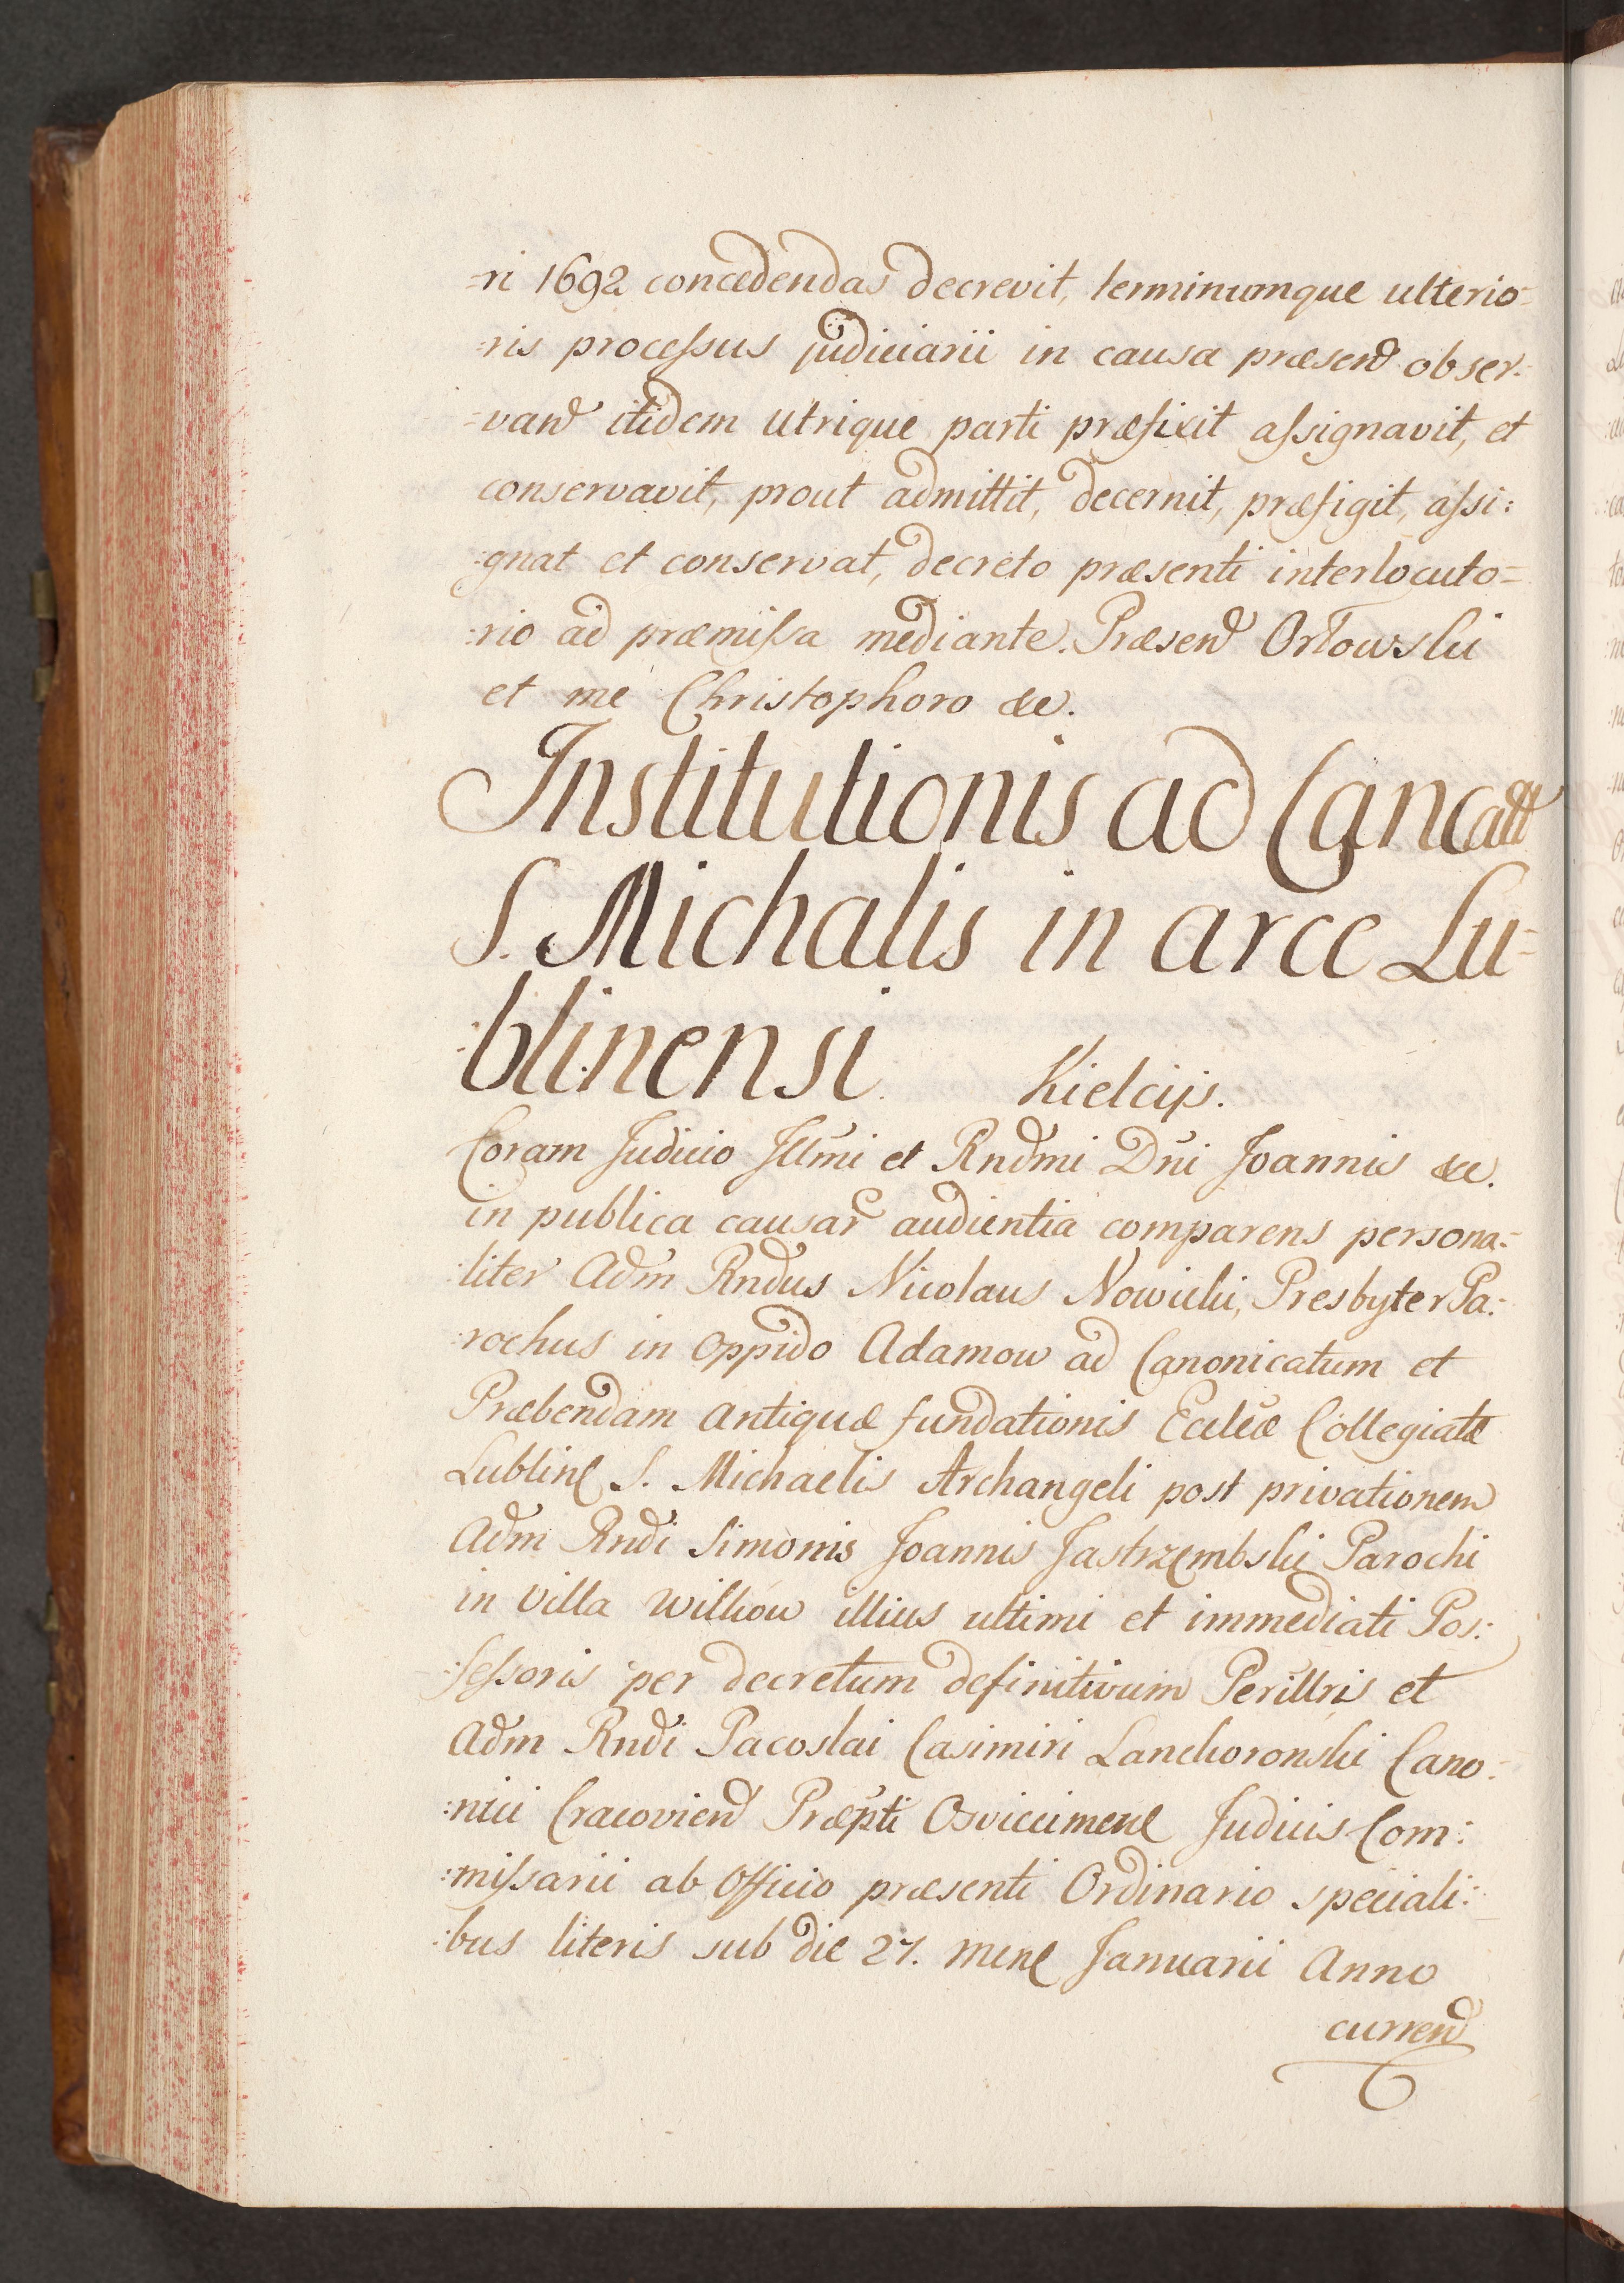 =ri 1692 concedendas decrevit, terminumque ulterio=
:ris processus judiciarii in causa præsend obser:
=vand itidem utrique parti præfixit assignavit, et
conservavit, prout admittit, decernit, præfigit, assi:
:gnat et conservat, decreto præsenti interlocuto=
:rio ad præmissa mediante. Præsend Orłowski
et me Christophoro &c.
Institutionis ad Cancatt
S. Michalis in arce Lu=
:blinensi
Kielcijs.
Coram Judicio Illmi et Rndmi Dni Joannis &c.
in publica causar audientia comparens persona:
:liter Adm Rndus Nicolaus Nowicki, Presbyter Pa:
:rochus in oppido Adamow ad Canonicatum et
Præbendam antiquæ fundationis Eccleæ Collegiatæ
Lubline S. Michaelis Archangeli post privationem
Adm Rndi Simonis Joannis Jastrzembski Parochi
in villa Wilkow illius ultimi et immediati Pos:
:sessoris per decretum definitivum Perillris et
Adm Rndi Pacoslai Casimiri Lanckoronski Cano:
:nici Cracoviend Præpti Osviecimene Judicis Com:
:missarii ab Officio præsenti Ordinario speciali:
:bus literis sub die 27. mene Januarii Anno
currend